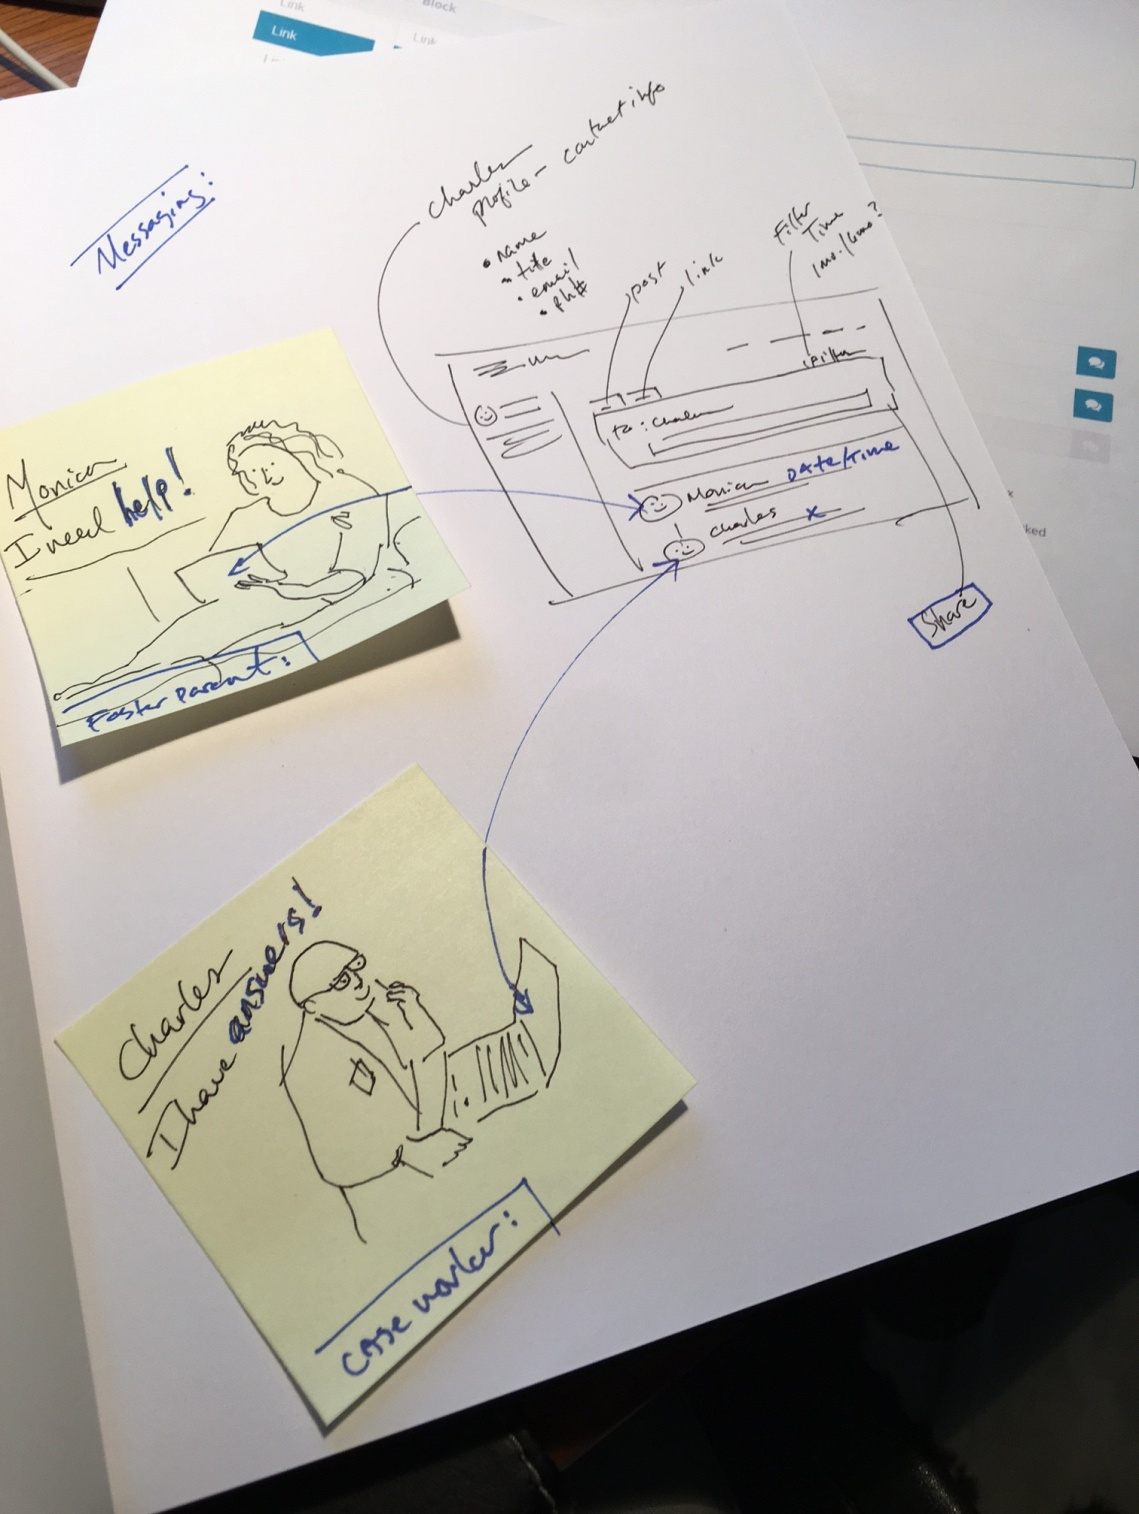 Link
Block
Link
Link
Messaging:
Charles
profile - contact info
• name
• title
• email
• ph#
post
link
Filter
Time
1mo./6mo?
Filter
to: Charles
Monica DATE/TIME
Charles x
Share
Monica
I need help!
Foster Parent:
Charles
I have answers!
CASE worker: